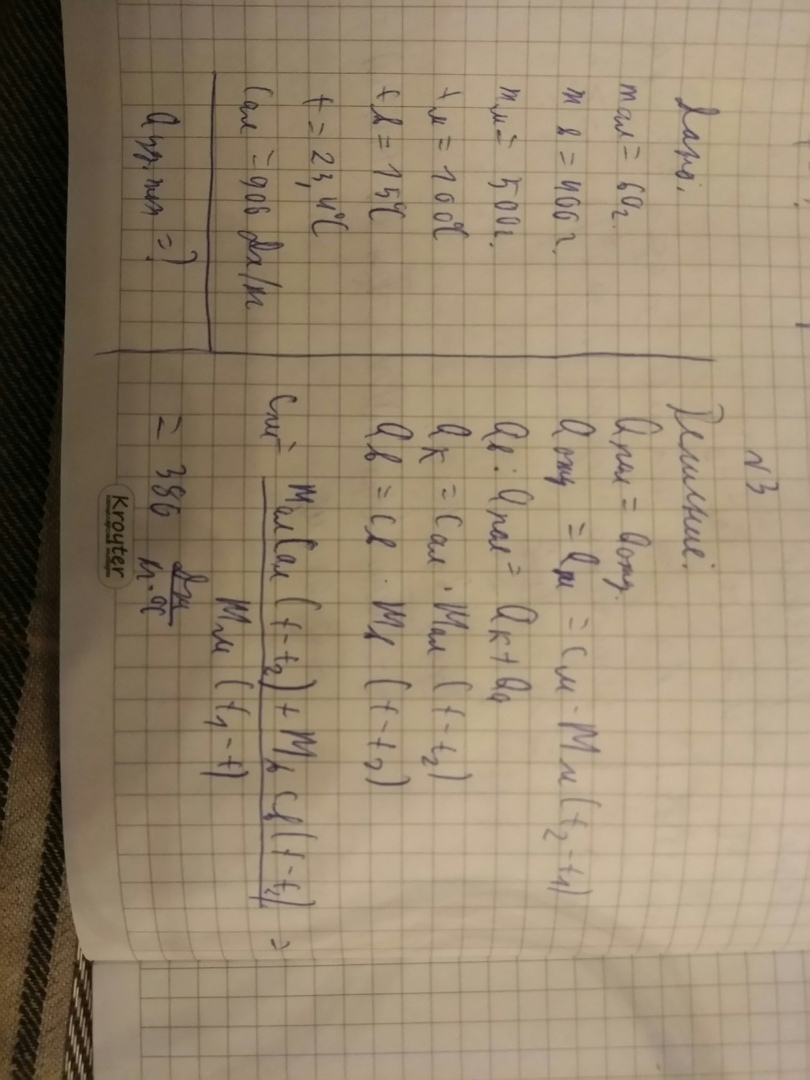 №3
Дано:
mал = 60г.
mв = 400г.
mм = 500г.
tм = 100℃
tв = 15℃
t = 23,4℃
Cал = 906 Дж/кг
Решение:
Qпол = Qотд.
Qотд = Qм = Cм · Mм (t2 - t1)
Qв: Qпол = Qк + Qв
Qк = Cал · Mал (t - t2)
Qв = Cв · Mв (t - t2)
Cм = Mал Cал (t - t2) + Mв Cв (t - t2) =
Mм (t1 - t)
= 386 Дж
кг·℃
Krouter